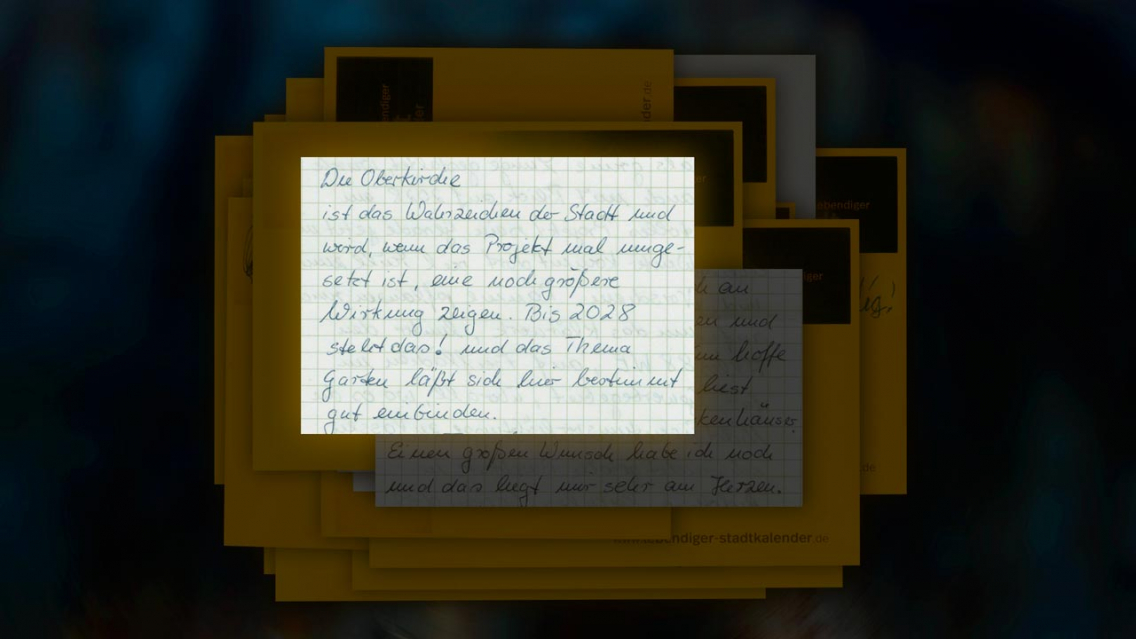 Die Oberkirche
ist das Wahrzeichen der Stadt und
wird, wenn das Projekt mal umge-
setzt ist, eine noch größere
Wirkung zeigen. Bis 2028
steht das! und das Thema
Garten läßt sich hier bestimmt
gut einbinden.
ch an
en und
hoffe
liest
kenhäuser.
Einen großen Wunsch habe ich noch
und das liegt mir sehr am Herzen.
www.lebendiger-stadtkalender.de